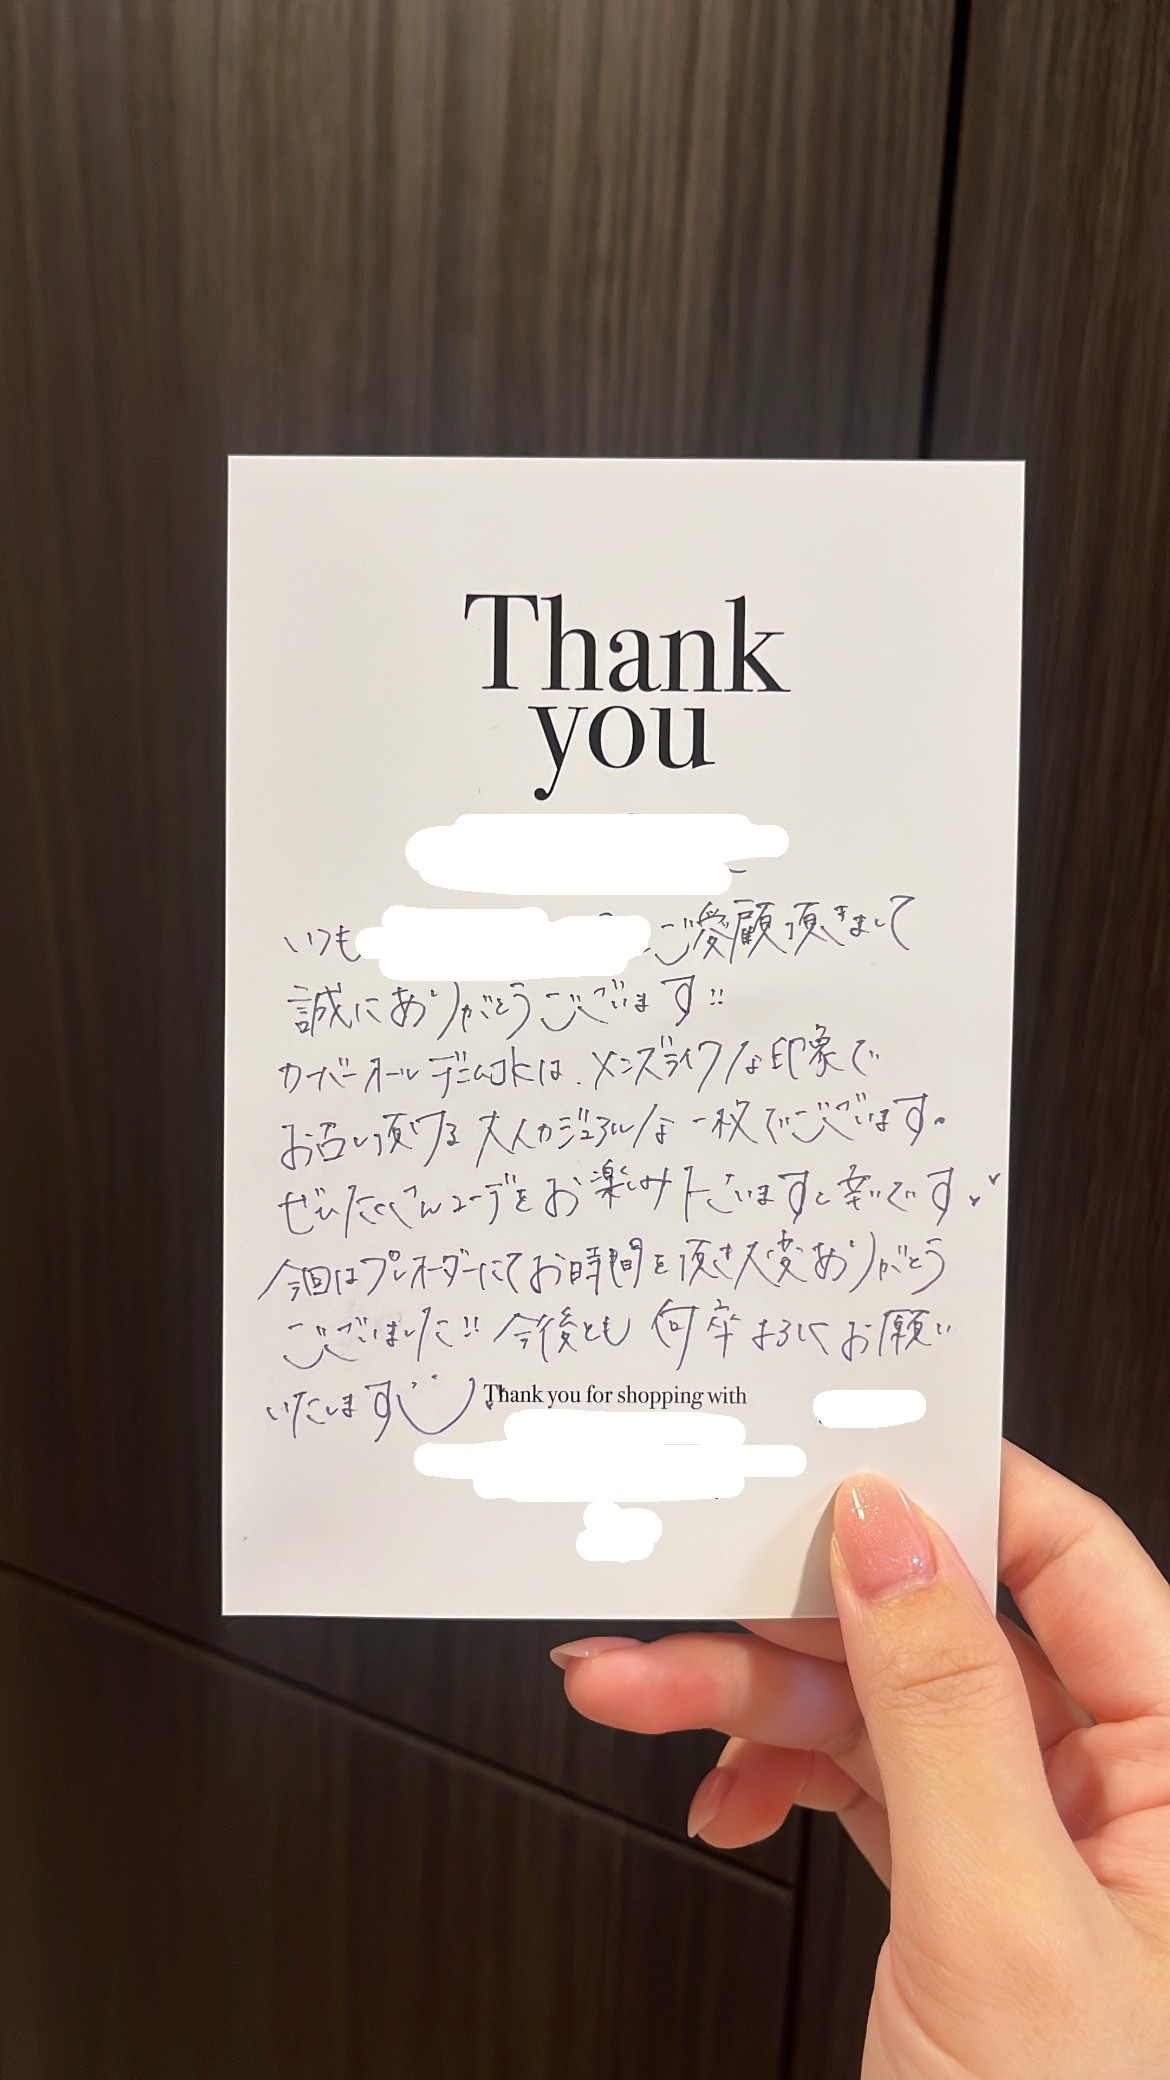 Thank
you
いつも ご愛顧頂きまして
誠にありがとうございます!!
カバーオールデニムJKは、メンズライクな印象で
お召し頂ける大人カジュアルな一枚でございます。
ぜひたくさんコーデをお楽しみ下さいますと幸いです
今回はプレオーダーにてお時間を頂き大変ありがとう
ございました!! 今後とも何卒よろしくお願い
いたします
Thank you for shopping with